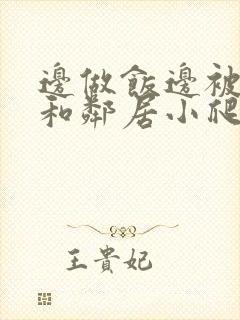 邊做飯邊被
和鄰居小爬
王貴妃